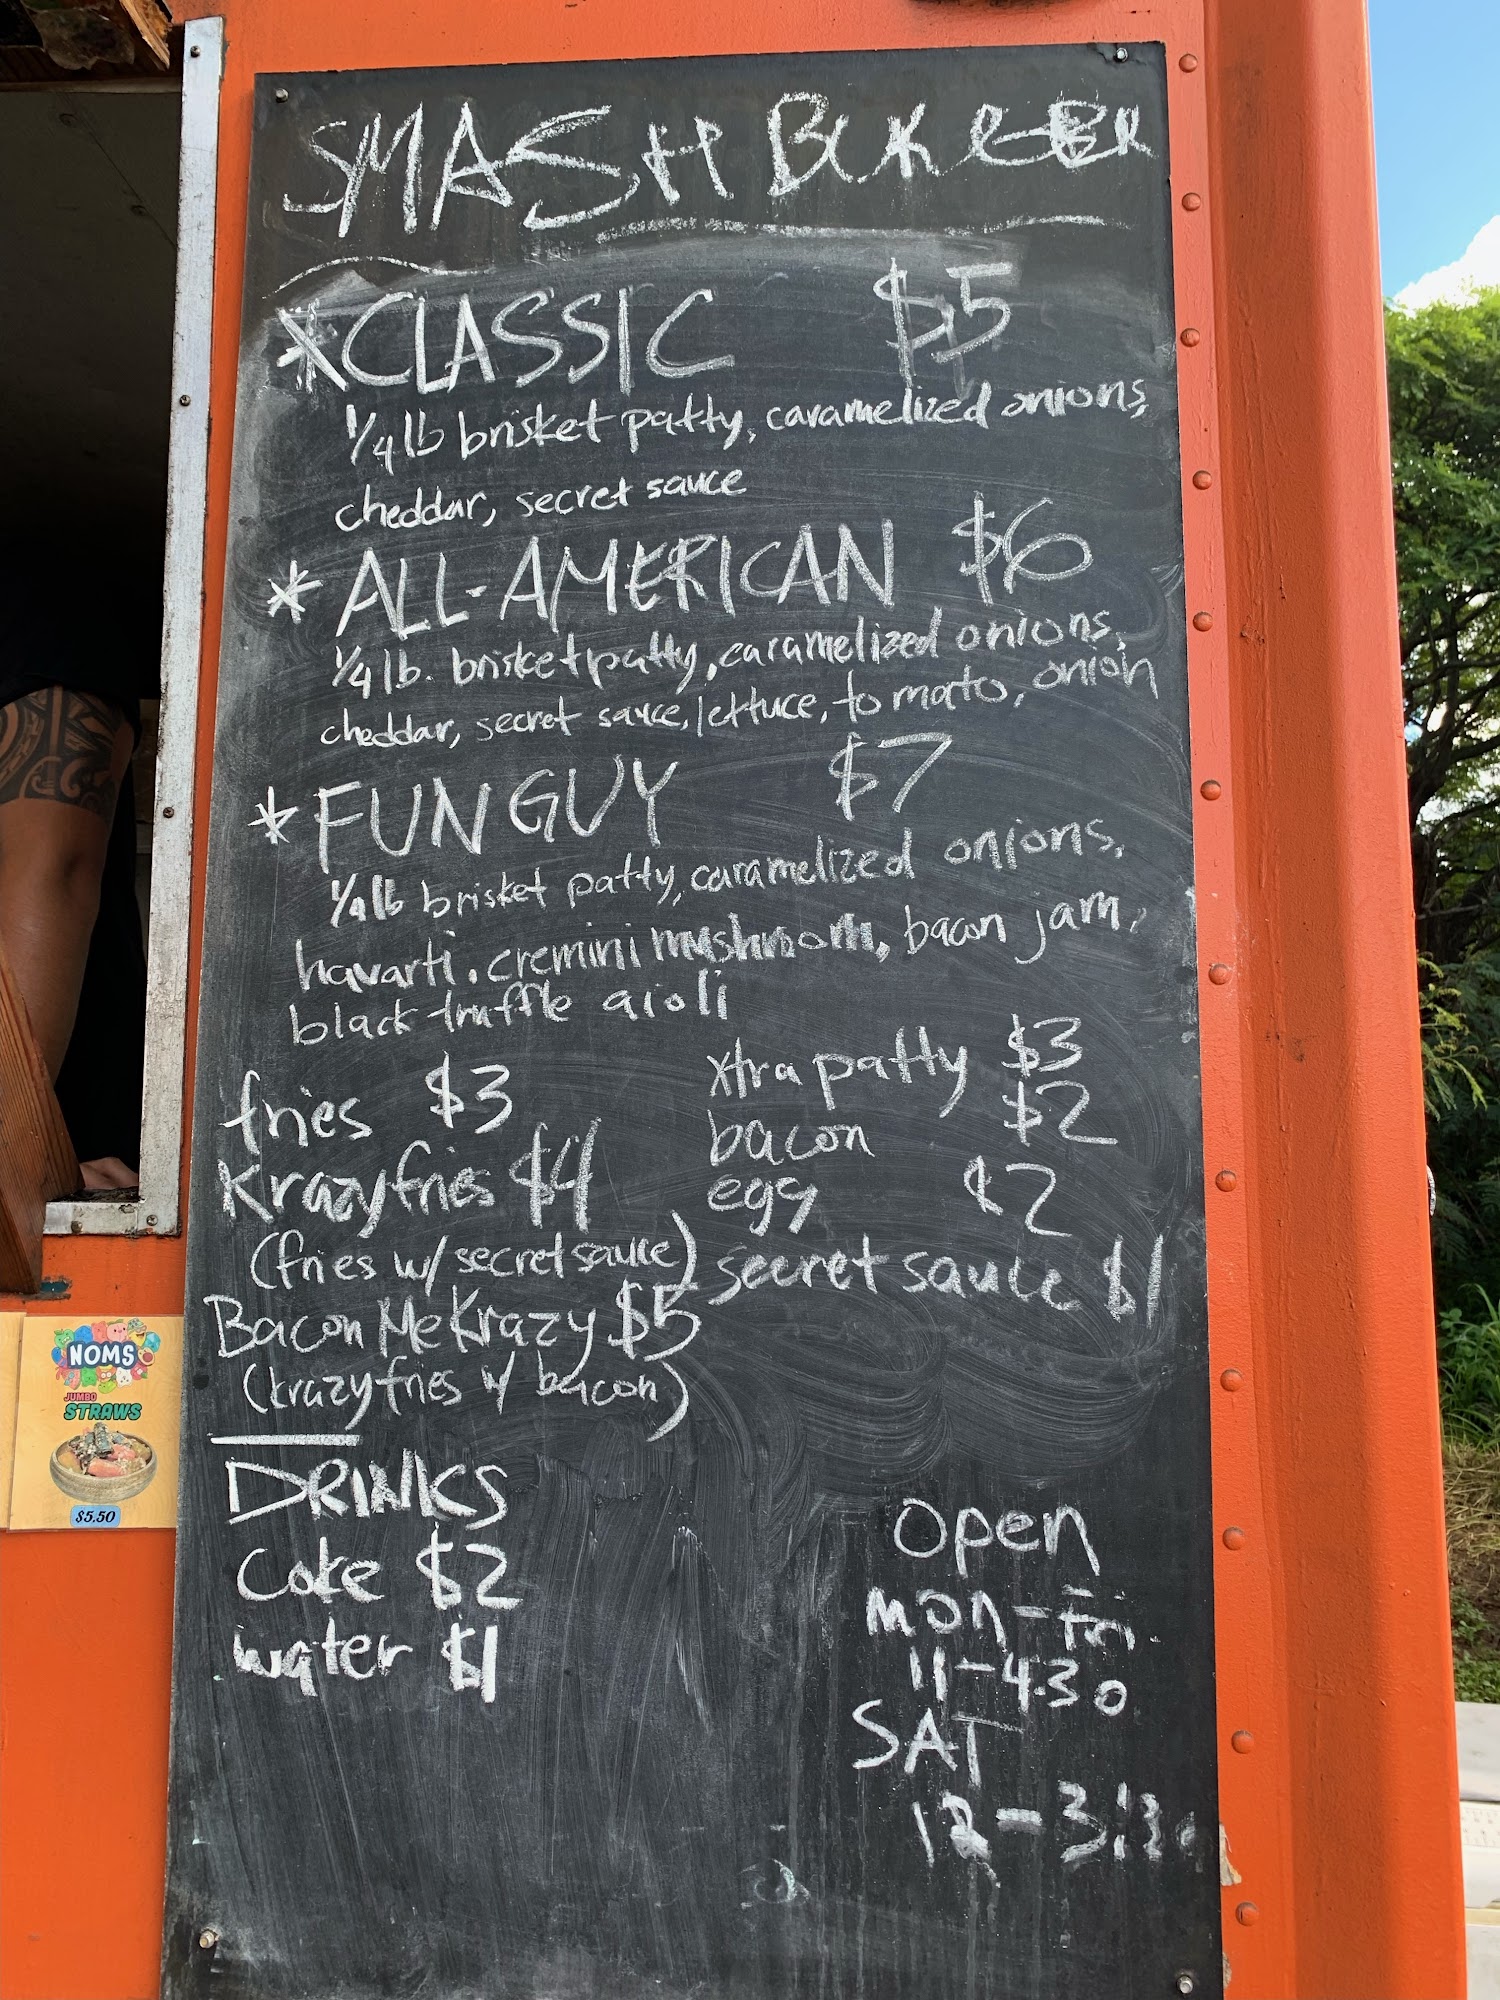 SMASH BURGER
*CLASSIC $5
1/4 lb brisket patty, caramelized onions,
cheddar, secret sauce
* ALL-AMERICAN $6
1/4 lb. brisket patty, caramelized onions,
cheddar, secret sauce, lettuce, tomato, onion
* FUN GUY $7
1/4 lb brisket patty, caramelized onions,
havarti, cremini mushroom, bacon jam,
black truffle aioli
fries $3
Krazy fries $4
(fries w/ secret sauce)
Bacon Me Krazy $5
(krazy fries w/ bacon)
xtra patty $3
bacon $2
egg $2
secret sauce $1
DRINKS
Coke $2
water $1
Open
mon-Fri.
11-4:30
SAT
12-3:30
NOMS
JUMBO
STRAWS
$5.50